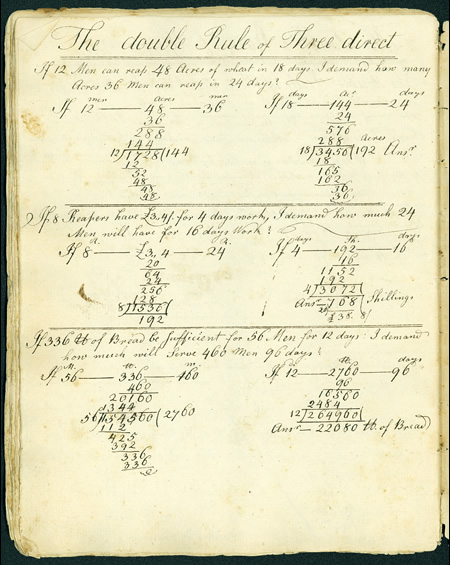 The double Rule of Three direct
If 12 Men can reap 48 Acres of wheat in 18 days I demand how many
Acres 36 Men can reap in 24 days?
men Acres men
If 12 — 48 — 36
36
288
144
12)1728(144
12
52
48
48
48
days Ar. days
If 18 — 144 — 24
24
576
288 Acres
18)3456(192 Ansr
18
165
162
36
36
If 8 Reapers have £3.4/. for 4 days work, I demand how much 24
Men will have for 16 days Work?
R. R.
If 8 — £3,4 — 24
20
64
24
256
128
8)1536(
192
days Sh. days
If 4 — 192 — 16
16
1152
192
4)3072(
Ansr 768 Shillings
£38.8/
If 336 lb of Bread be Sufficient for 56 Men for 12 days: I demand
how much will Serve 460 Men 96 days?
M. lb. m.
If 56 — 336 — 460
460
20160
1344
56)154560(2760
112
425
392
336
336
0
days lb. days
If 12 — 2760 — 96
96
16560
2484
12)264960(
Ansr — 22080 lb. of Bread